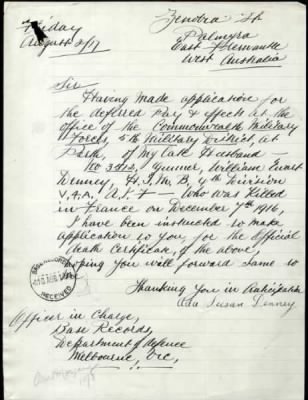 Zenobia St.
Palmyra
East Fremantle
West Australia
Friday
August 3/17
Sir
Having made application for
the deferred Pay & effects at the
office of the Commonwealth Military
Forces, 5th Military District, at
Perth, of my late Husband
No 3412, Gunner, William Ewart
Denney, H.T.M.B, 4th Division
V.4.A, A.I.F. Who was Killed
in France on December 7th 1916,
I have been instructed to make
application to you for the Official
Death Certificate, of the above,
hoping you will forward same to
me
Thanking You in Anticipation
Ada Susan Denney
RECEIVED
Officer in Charge,
Base Records,
Department of Defence
Melbourne, Vic,